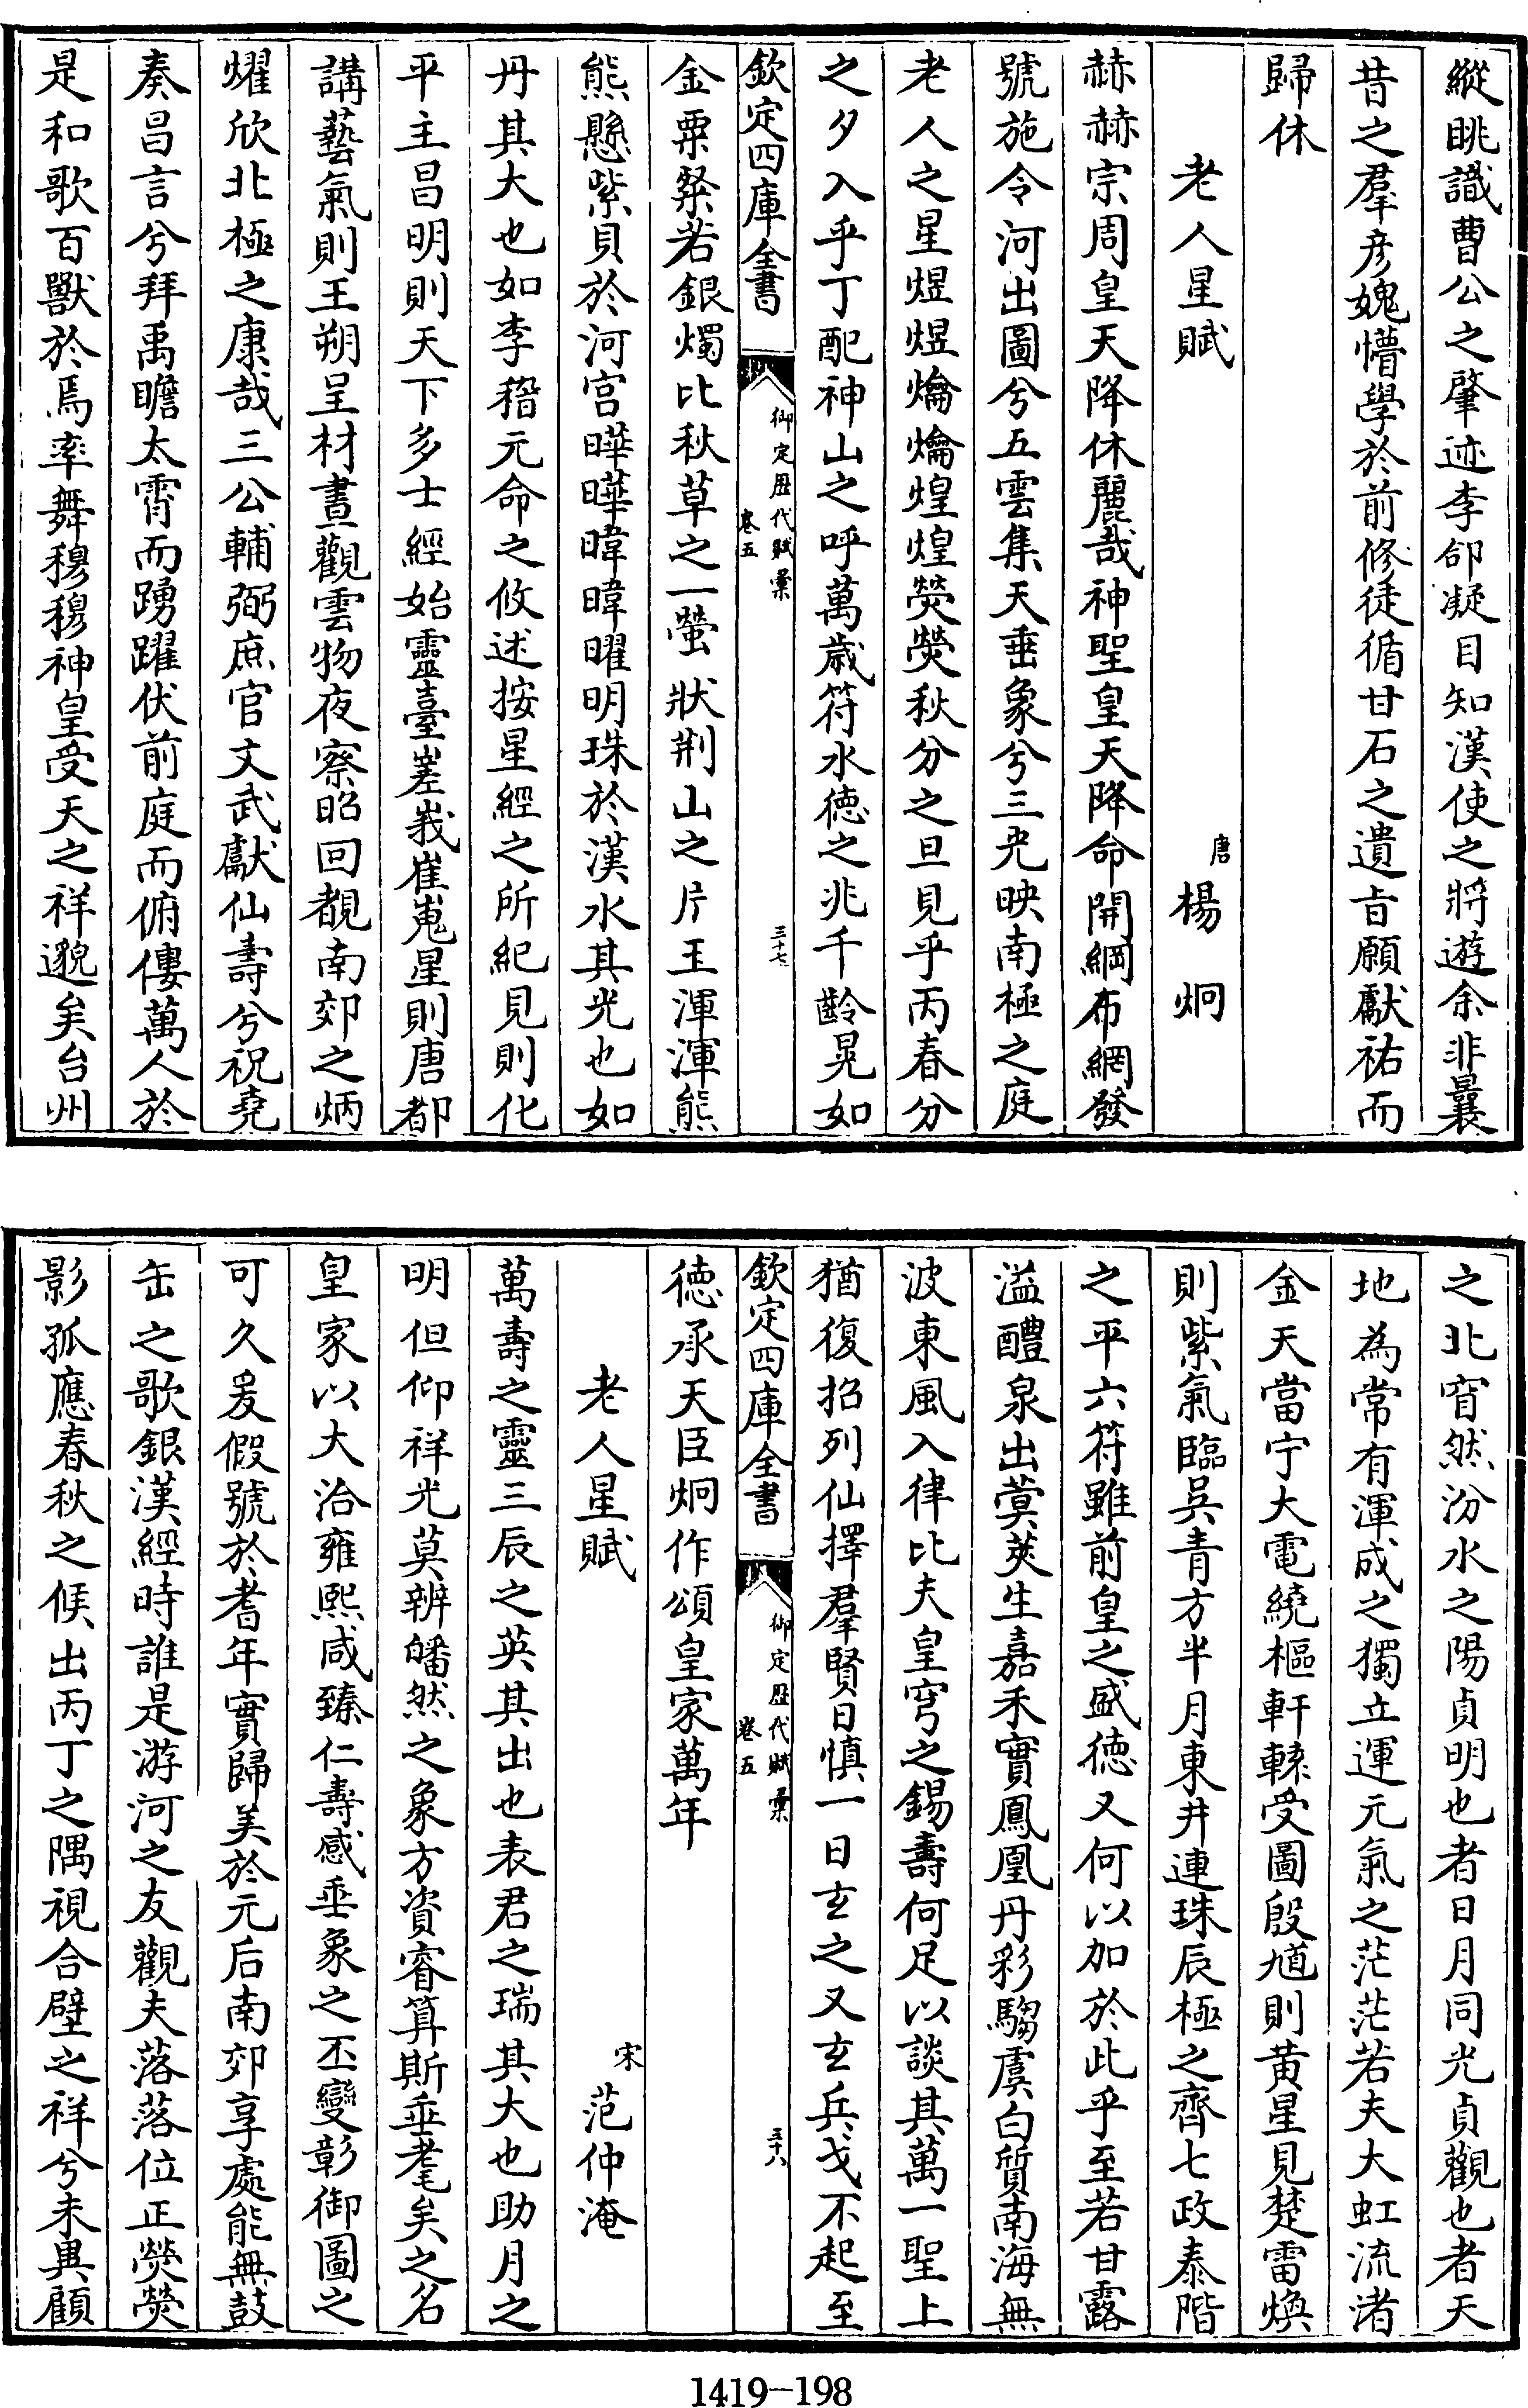 縱眺識曹公之肇迹李郃凝目知漢使之將遊余非曩
昔之羣彦媿懵學於前修徒循甘石之遺㫖願獻祐而
歸休
老人星賦
唐楊炯
赫赫宗周皇天降休麗哉神聖皇天降命開綱布網發
號施令河出圖兮五雲集天垂象兮三光映南極之庭
老人之星煜煜爚爚煌煌熒熒秋分之旦見乎丙春分
之夕入乎丁配神山之呼萬歲符水德之兆千齡晃如
欽定四庫全書
御定歴代賦彙
卷五
三十七
金粟粲若銀燭比秋草之一螢狀荆山之片玉渾渾熊
熊懸紫貝於河宫曄曄暐暐曜明珠於漢水其光也如
丹其大也如李稽元命之攸述按星經之所紀見則化
平主昌明則天下多士經始靈臺嵳峩崔嵬星則唐都
講藝氣則王朔呈材晝觀雲物夜察昭回覩南郊之炳
燿欣北極之康哉三公輔弼庶官文武獻仙壽兮祝堯
奏昌言兮拜禹瞻太霄而踴躍伏前庭而俯僂萬人於
是和歌百獸於焉率舞穆穆神皇受天之祥邈矣台州
之北窅然汾水之陽貞明也者日月同光貞觀也者天
地為常有渾成之獨立運元氣之茫茫若夫大虹流渚
金天當宁大電繞樞軒轅受圖殷馗則黄星見楚雷煥
則紫氣臨吳青方半月東井連珠辰極之齊七政泰階
之平六符雖前皇之盛德又何以加於此乎至若甘露
溢醴泉出蓂莢生嘉禾實鳳凰丹彩騶虞白質南海無
波東風入律比夫皇穹之錫壽何足以談其萬一聖上
猶復招列仙擇羣賢日慎一日玄之又玄兵戈不起至
欽定四庫全書
御定歴代賦彙
卷五
三十八
德承天臣炯作頌皇家萬年
老人星賦
宋范仲淹
萬壽之靈三辰之英其出也表君之瑞其大也助月之
明但仰祥光莫辨皤然之象方資睿算斯垂耄矣之名
皇家以大治雍熙咸臻仁壽感垂象之丕變彰御圖之
可久爰假號於耆年實歸美於元后南郊享處能無鼓
缶之歌銀漢經時誰是游河之友觀夫落落位正熒熒
影孤應春秋之候出丙丁之隅視合璧之祥兮未異顧
1419-198